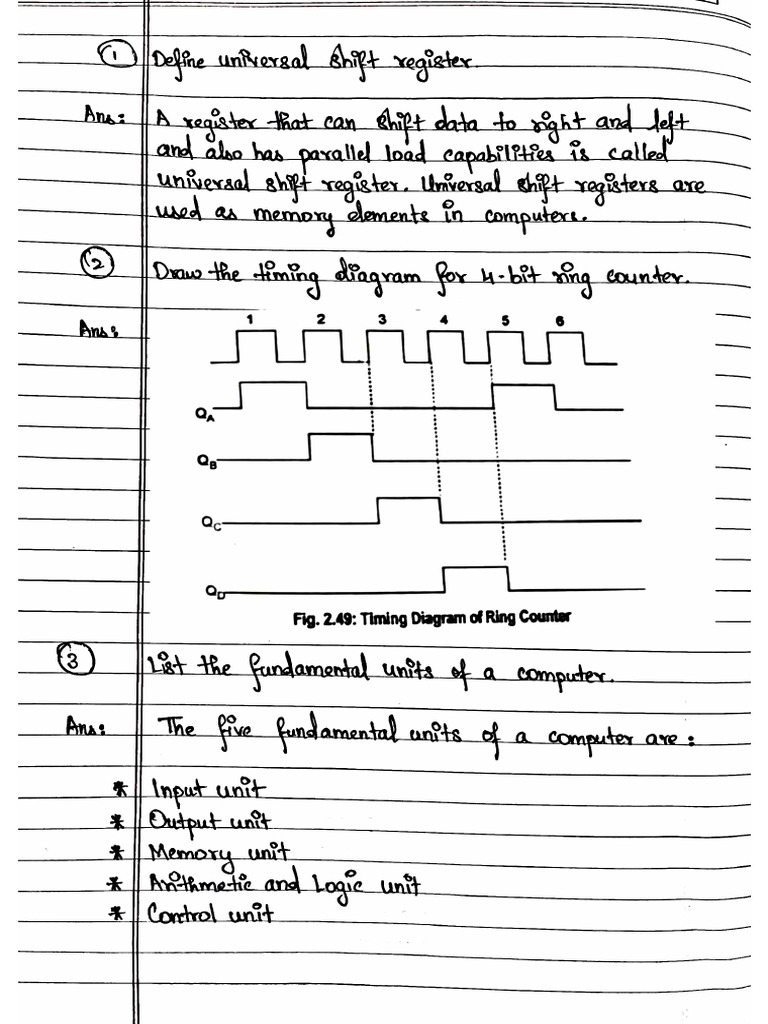 1 Define universal shift register.
Ans: A register that can shift data to right and left
and also has parallel load capabilities is called
universal shift register. Universal shift registers are
used as memory elements in computers.
2 Draw the timing diagram for 4-bit ring counter.
Ans:
1 2 3 4 5 6
QA
QB
QC
QD
Fig. 2.49: Timing Diagram of Ring Counter
3 List the fundamental units of a computer.
Ans: The five fundamental units of a computer are:
* Input unit
* Output unit
* Memory unit
* Arithmetic and Logic unit
* Control unit